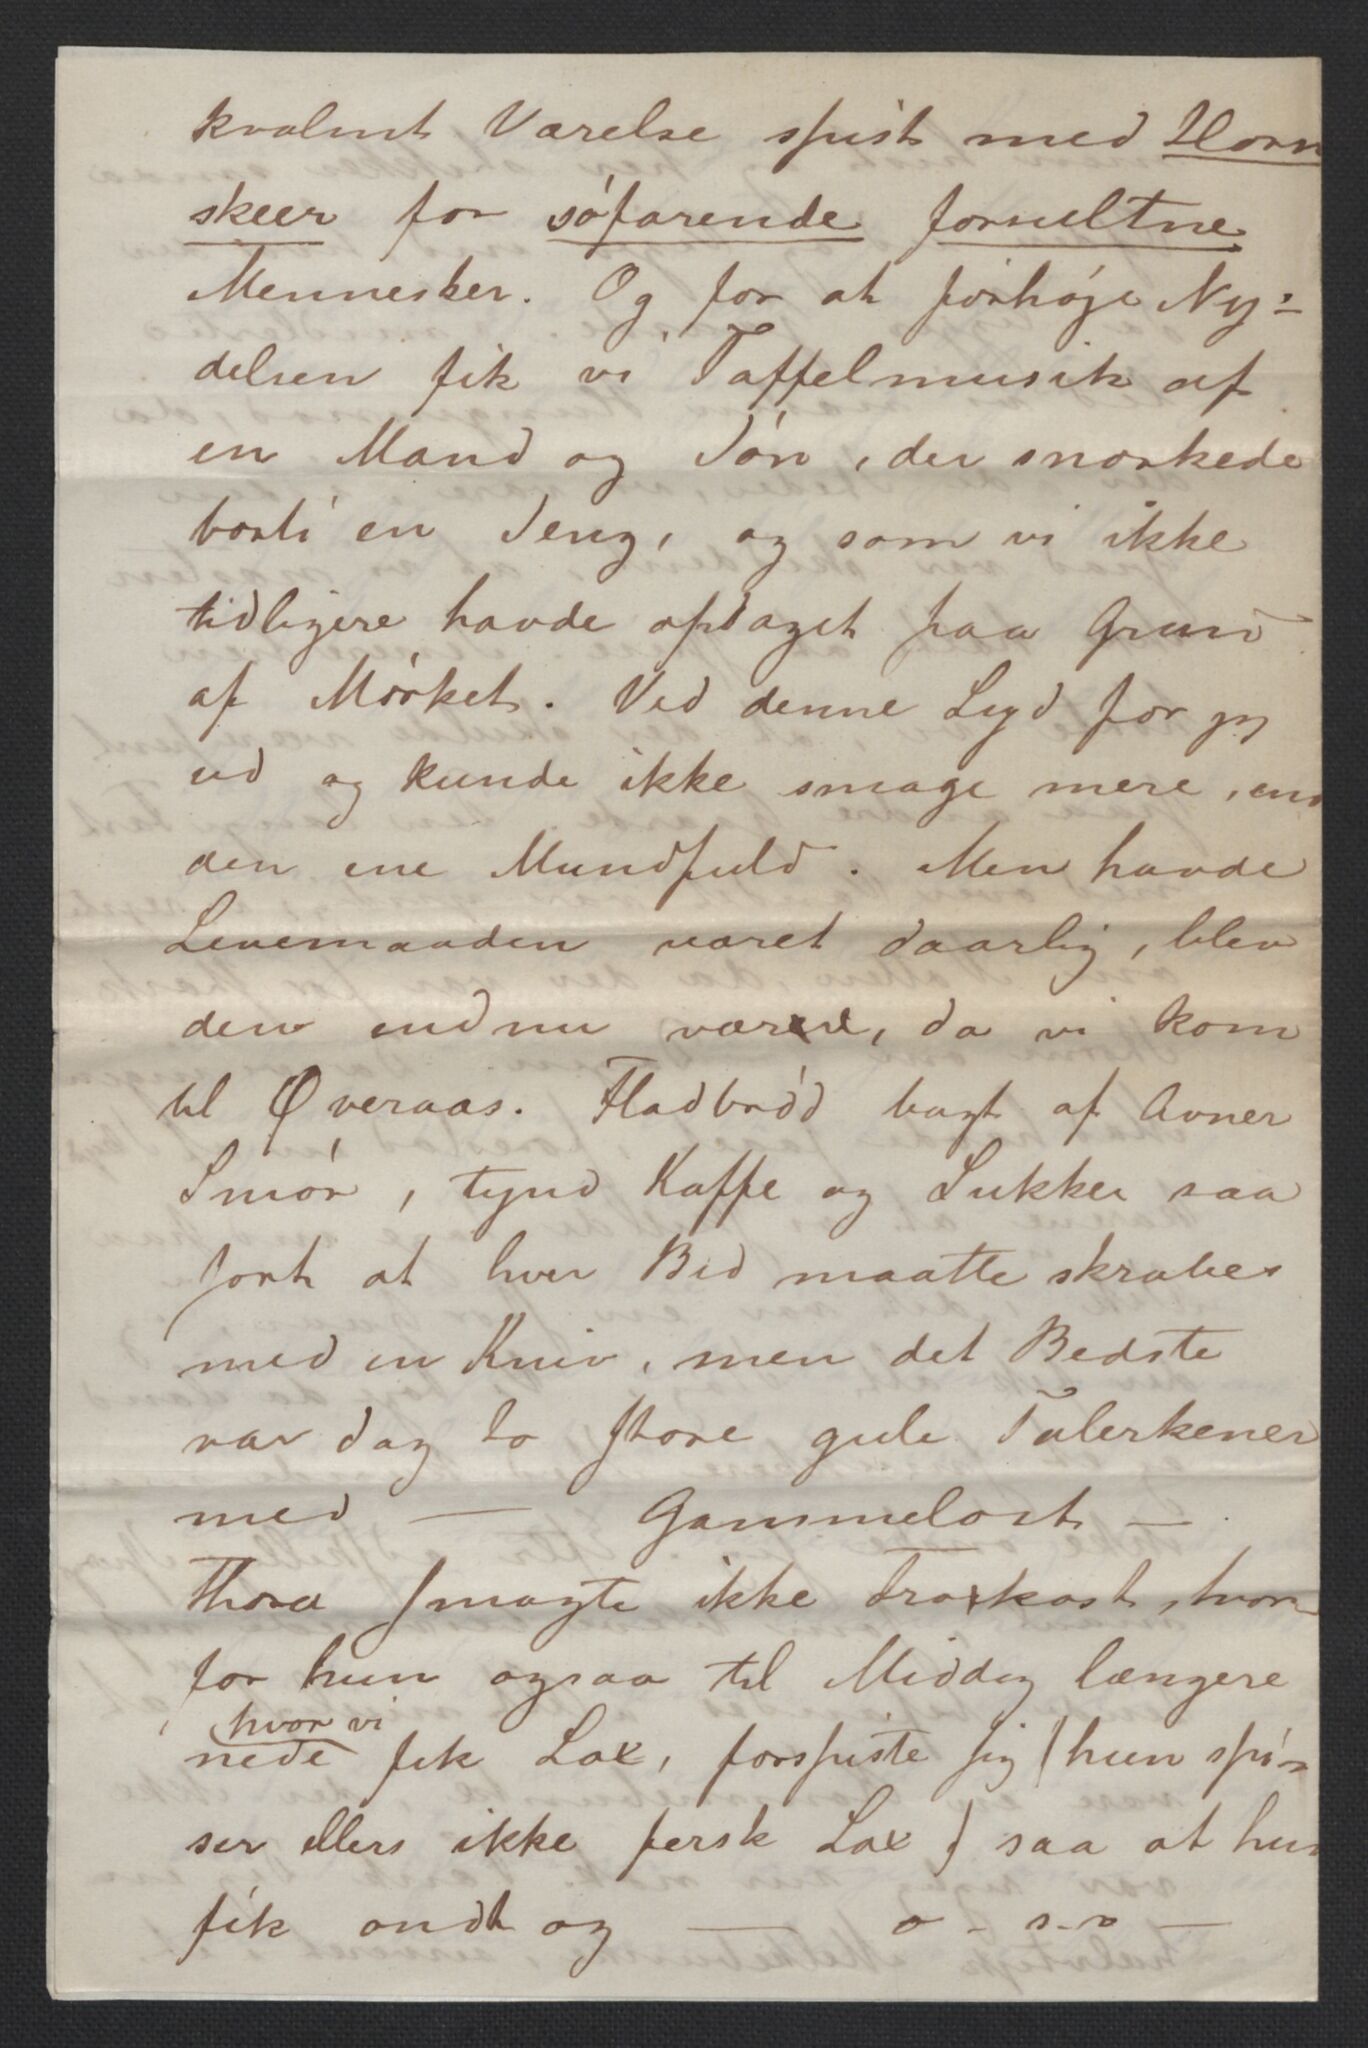 kvalmt Værelse spist med Horn
skeer for søfarende forsultne
Mennesker. Og for at forhøje Ny=
delsen fik vi Taffelmusik af
en Mand og Søn, der snorkede
borti en Seng, og som vi ikke
tidligere havde opdaget paa Grund
af Mørket. Ved denne Lyd for jeg
ud og kunde ikke smage mere, end
den ene Mundfuld. Men havde
Levemaaden været daarlig, blev
den endnu værre, da vi kom
til Øveraas. Fladbrød bagt af Avner
Smør, tynd Kaffe og Sukker saa
sort at hver Bid maatte skrabes
med en Kniv, men det Bedste
var dog to store gule Talerkener
med — Gammelost —
Thora smagte ikke Frokost, hvor-
for hun ogsaa til Middag længere
hvor vi
nede fik Lax, forspiste sig (hun spi-
ser ellers ikke fersk Lax) saa at hun
fik ondt og — o - s.v —